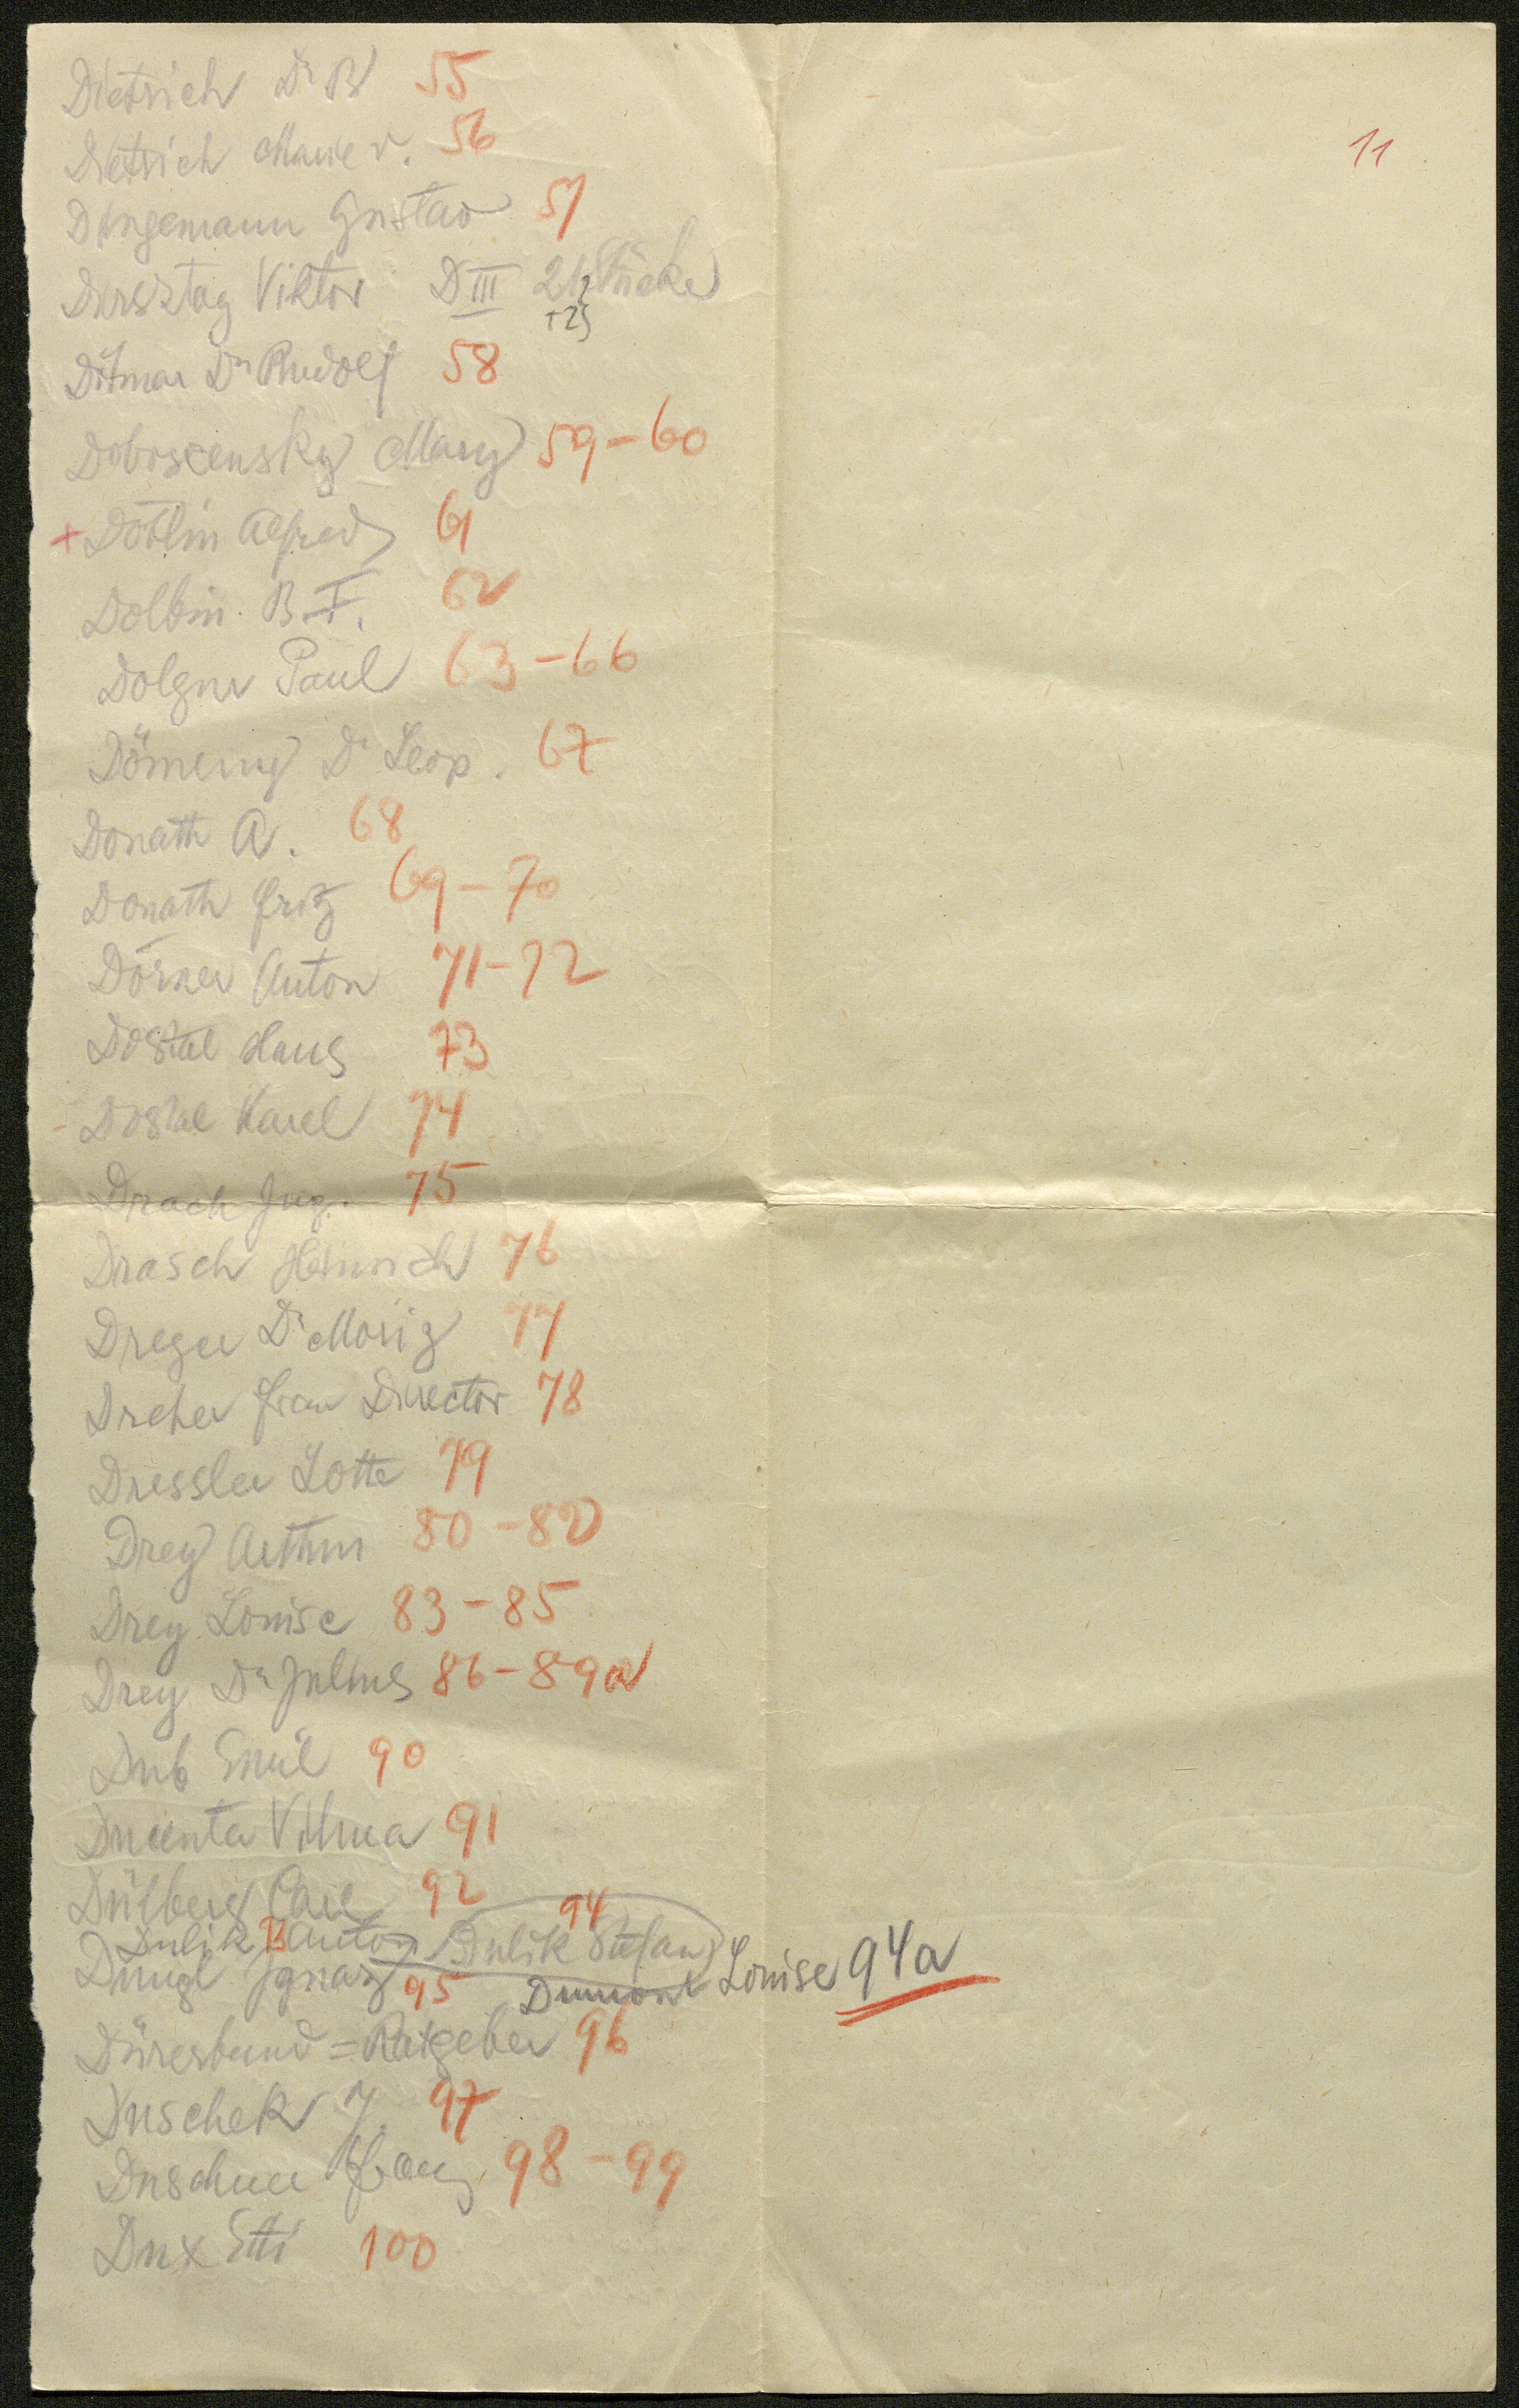 Dietrich Dr B 55
Dietrich Marie v. 56
11
Dingemann Gustav 57
Dirsztag Viktor D III 212 Stücke
+25
Ditmar Dr Rudolf 58
Doboscensky Mary 59-60
+ Döblin Alfred 61
Dolbin B. F. 62
Dolgner Paul 63-66
Dömeny Dr Leop. 67
Donath A. 68
Donath Fritz 69-70
Dörner Anton 71-72
Dostal Hans 73
Dostal Karel 74
Drach Ing. 75
Drasch Heinrich 76
Dreger Dr Moriz 77
Dreher Frau Director 78
Dressler Lotte 79
Drey Arthur 80-82
Drey Louise 83-85
Drey Dr Julius 86-89a
Dub Emil 90
Vilma 91
Dülberg Carl 92
Dulik Anton Dulik Stefan 94
Dungl Ignaz 95 Dumont Louise 94a
Dürerbund=Ratgeber 96
Duschek J. 97
Duschner Franz 98-99
Dux Etti 100